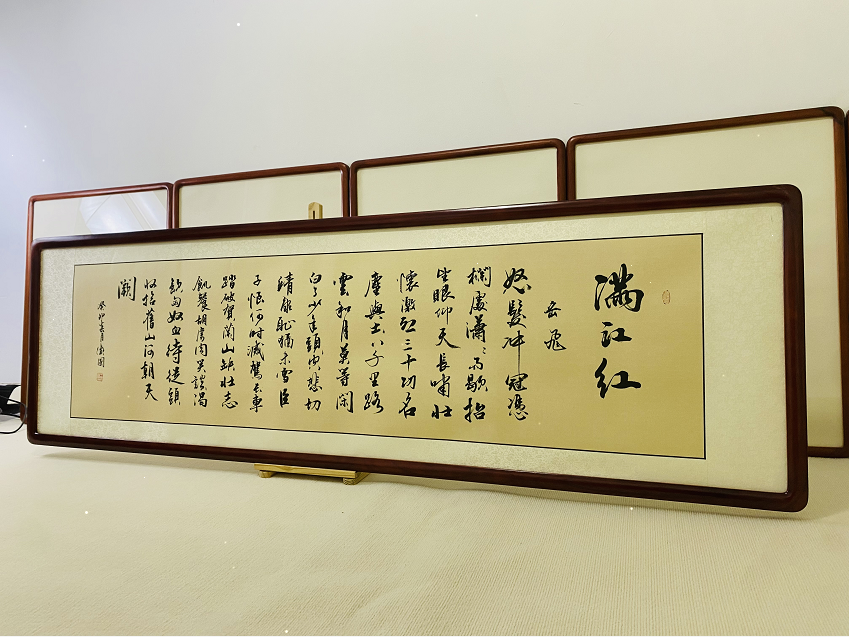 滿江紅
岳飛
怒髮冲冠憑
欄處瀟〻雨歇抬
望眼仰天長嘯壯
懷激烈三十功名
塵與土八千里路
雲和月莫等閑
白了少年頭空悲切
靖康恥猶未雪臣
子恨何時滅駕長車
踏破賀蘭山缺壯志
飢餐胡虜肉笑談渴
飲匈奴血待從頭
收拾舊山河朝天
闕
癸卯春月衛國